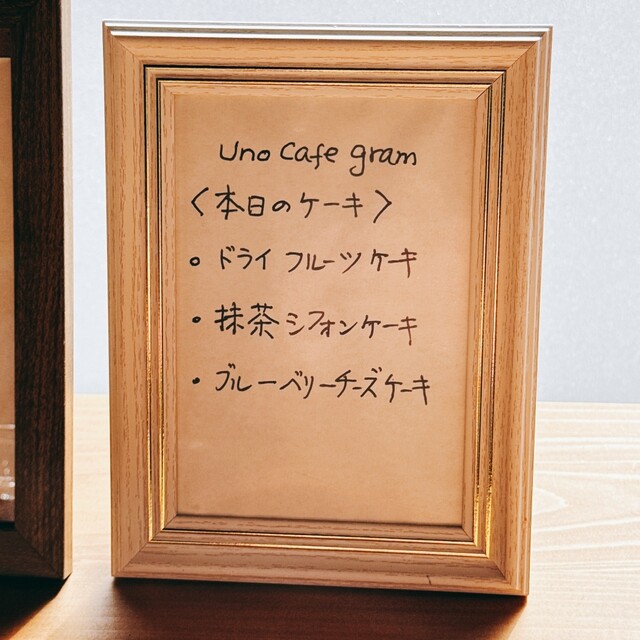 Uno Cafe gram
〈本日のケーキ〉
○ ドライフルーツケーキ
・抹茶シフォンケーキ
・ブルーベリーチーズケーキ